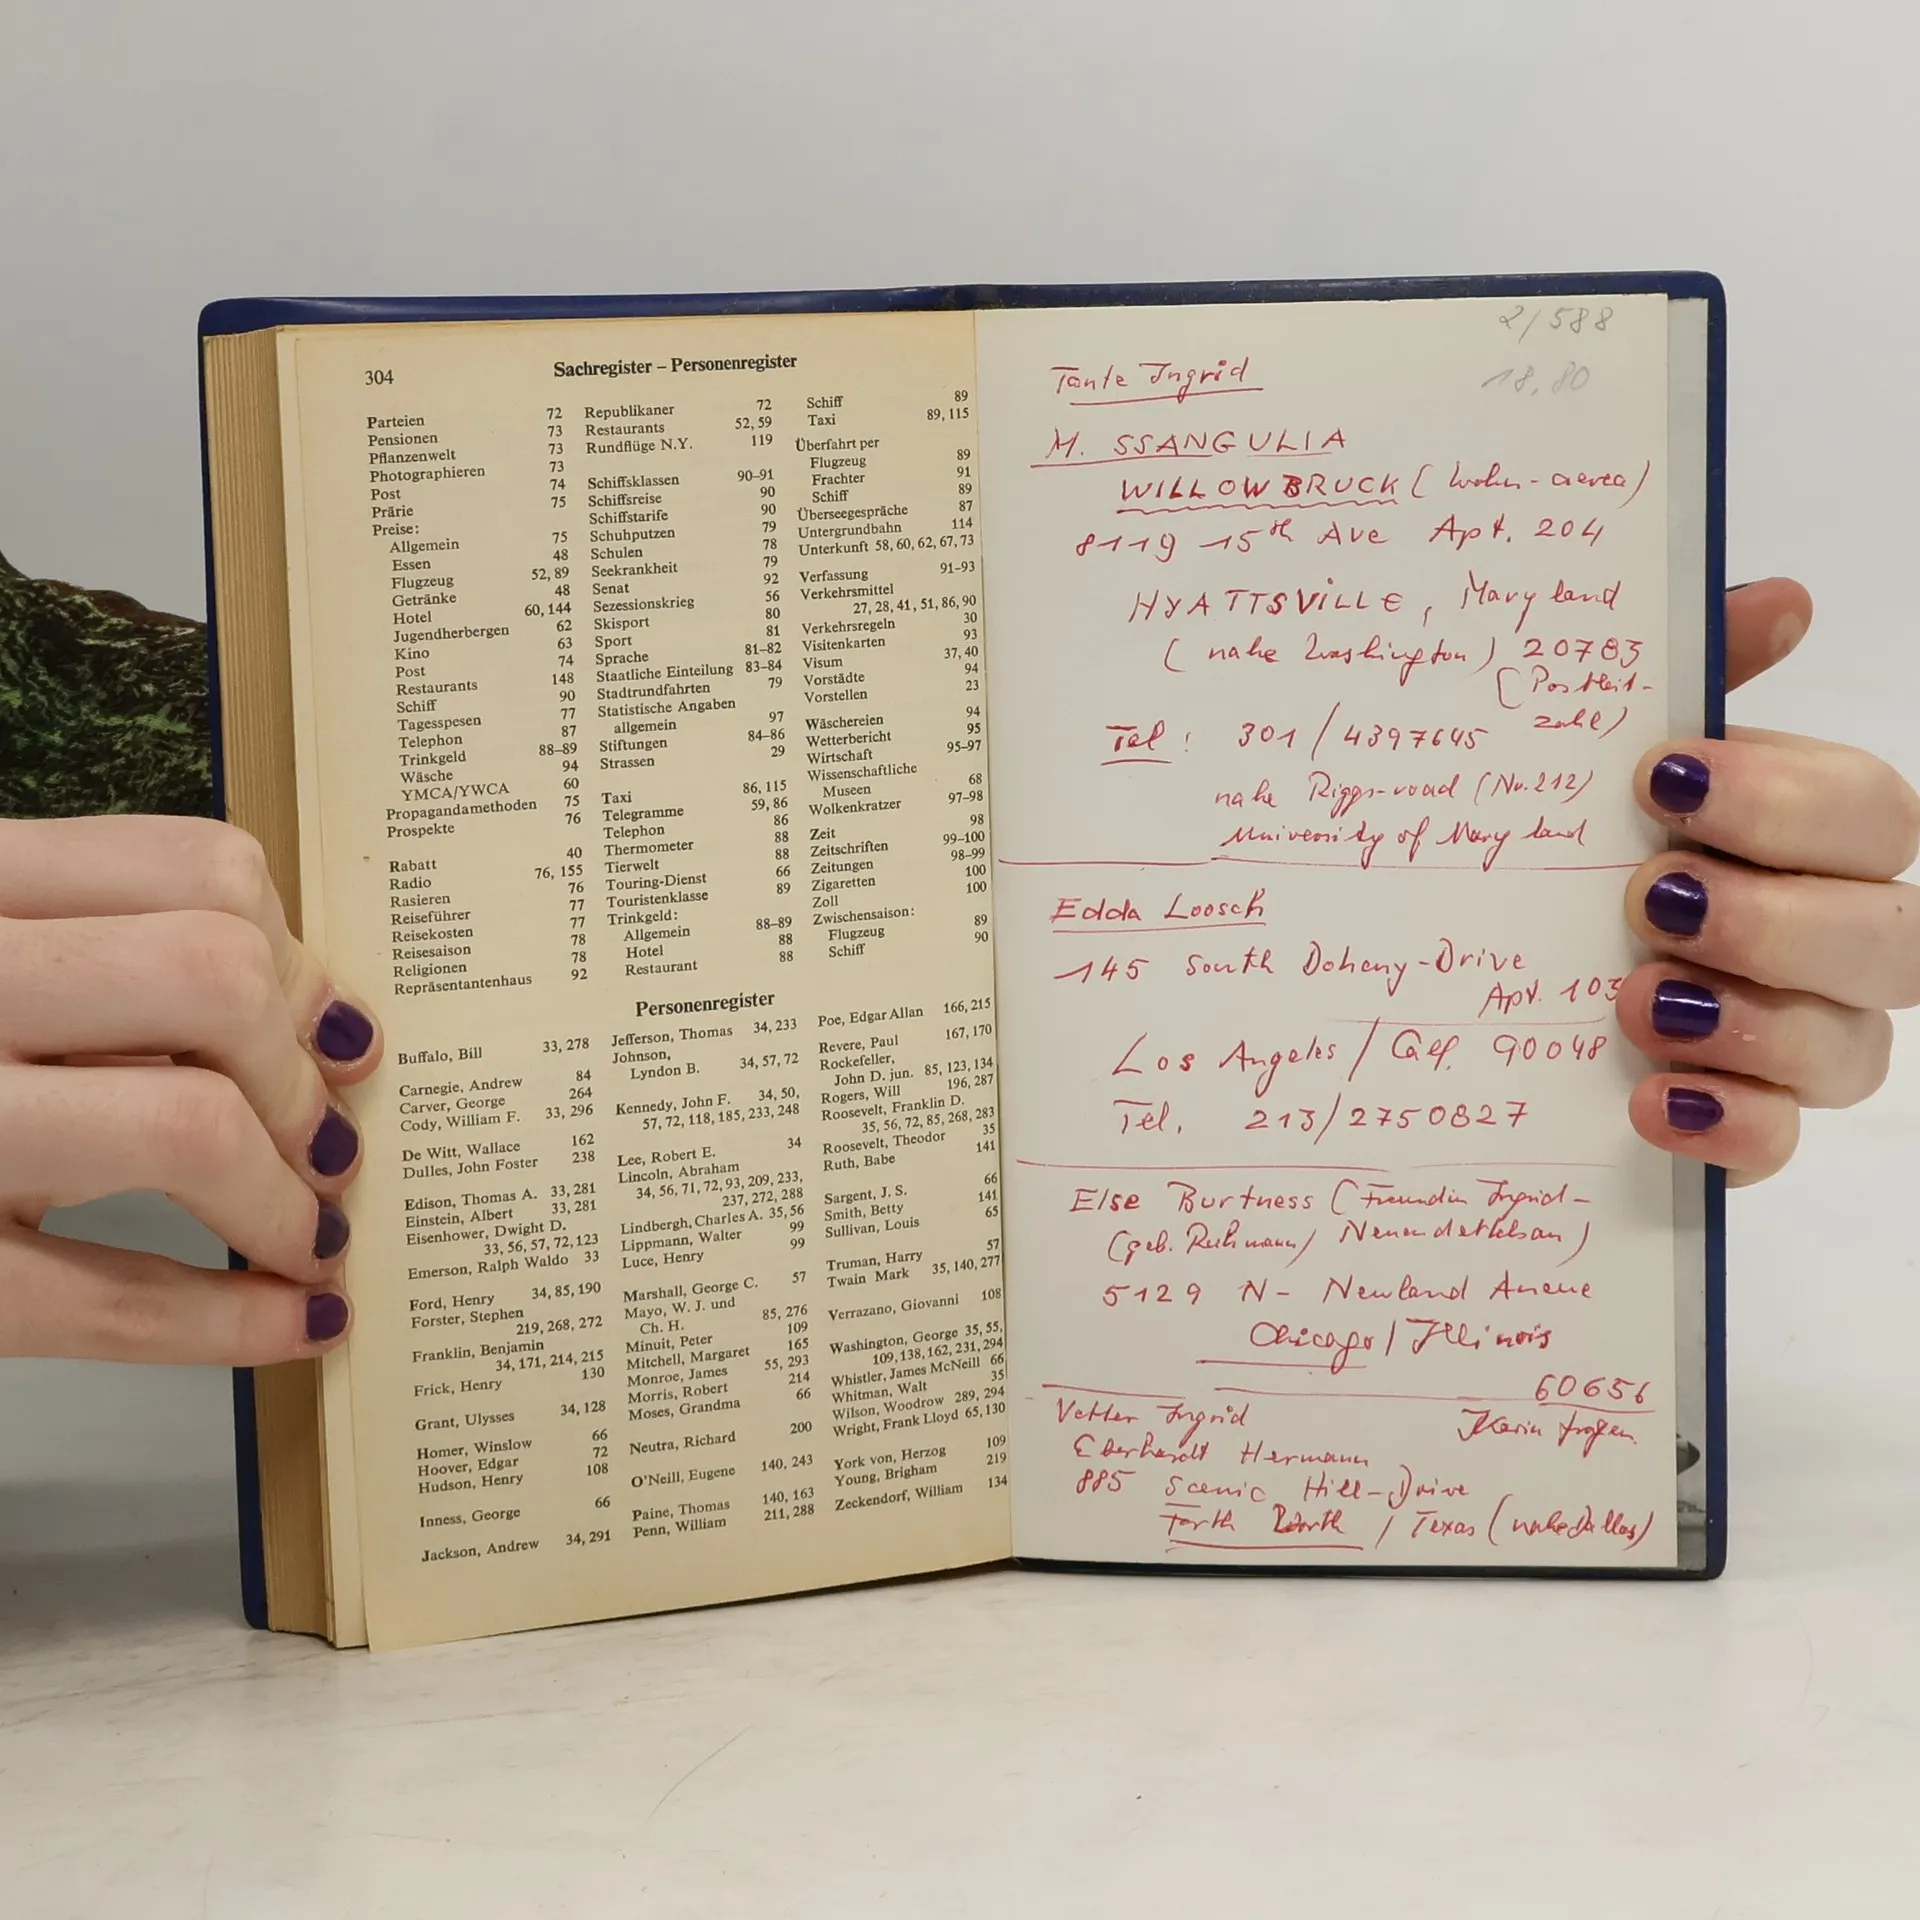 304
Sachregister – Personenregister
Parteien 72
Pensionen 73
Pflanzenwelt 73
Photographieren 73
Post 74
Prärie 75
Preise:
Allgemein 75
Essen 48
Flugzeug 52, 89
Getränke 48
Hotel 60, 144
Jugendherbergen 62
Kino 63
Post 74
Restaurants 148
Schiff 90
Tagesspesen 77
Telephon 87
Trinkgeld 88–89
Wäsche 94
YMCA/YWCA 60
Propagandamethoden 75
Prospekte 76
Rabatt 40
Radio 76, 155
Rasieren 76
Reiseführer 77
Reisekosten 77
Reisesaison 78
Religionen 78
Repräsentantenhaus 92
Republikaner 72
Restaurants 52, 59
Rundflüge N.Y. 119
Schiffsklassen 90–91
Schiffsreise 90
Schiffstarife 90
Schuhputzen 79
Schulen 78
Seekrankheit 79
Senat 92
Sezessionskrieg 56
Skisport 80
Sport 81
Sprache 81–82
Staatliche Einteilung 83–84
Stadtrundfahrten 79
Statistische Angaben
allgemein 97
Stiftungen 84–86
Strassen 29
Taxi 86, 115
Telegramme 59, 86
Telephon 86
Thermometer 88
Tierwelt 88
Touring-Dienst 66
Touristenklasse 89
Trinkgeld:
Allgemein 88–89
Hotel 88
Restaurant 88
Schiff 89
Taxi 89, 115
Überfahrt per
Flugzeug 89
Frachter 91
Schiff 89
Überseegespräche 87
Untergrundbahn 114
Unterkunft 58, 60, 62, 67, 73
Verfassung 91–93
Verkehrsmittel
27, 28, 41, 51, 86, 90
Verkehrsregeln 30
Visitenkarten 93
Visum 37, 40
Vorstädte 94
Vorstellen 23
Wäschereien 94
Wetterbericht 95
Wirtschaft 95–97
Wissenschaftliche
Museen 68
Wolkenkratzer 97–98
Zeit 98
Zeitschriften 99–100
Zeitungen 98–99
Zigaretten 100
Zoll 100
Zwischensaison:
Flugzeug 89
Schiff 90
Personenregister
Buffalo, Bill 33, 278
Carnegie, Andrew 84
Carver, George 264
Cody, William F. 33, 296
De Witt, Wallace 162
Dulles, John Foster 238
Edison, Thomas A. 33, 281
Einstein, Albert 33, 281
Eisenhower, Dwight D.
33, 56, 57, 72, 123
Emerson, Ralph Waldo 33
Ford, Henry 34, 85, 190
Forster, Stephen
219, 268, 272
Franklin, Benjamin
34, 171, 214, 215
Frick, Henry 130
Grant, Ulysses 34, 128
Homer, Winslow 66
Hoover, Edgar 72
Hudson, Henry 108
Inness, George 66
Jackson, Andrew 34, 291
Jefferson, Thomas 34, 233
Johnson,
Lyndon B. 34, 57, 72
Kennedy, John F. 34, 50,
57, 72, 118, 185, 233, 248
Lee, Robert E. 34
Lincoln, Abraham
34, 56, 71, 72, 93, 209, 233,
237, 272, 288
Lindbergh, Charles A. 35, 56
Lippmann, Walter 99
Luce, Henry 99
Marshall, George C. 57
Mayo, W. J. und
Ch. H. 85, 276
Minuit, Peter 109
Mitchell, Margaret 165
Monroe, James 55, 293
Morris, Robert 214
Moses, Grandma 66
Neutra, Richard 200
O'Neill, Eugene 140, 243
Paine, Thomas 140, 163
Penn, William 211, 288
Poe, Edgar Allan 166, 215
Revere, Paul 167, 170
Rockefeller,
John D. jun. 85, 123, 134
Rogers, Will 196, 287
Roosevelt, Franklin D.
35, 56, 72, 85, 268, 283
Roosevelt, Theodor 35
Ruth, Babe 141
Sargent, J. S. 66
Smith, Betty 141
Sullivan, Louis 65
Truman, Harry 57
Twain Mark 35, 140, 277
Verrazano, Giovanni 108
Washington, George 35, 55,
109, 138, 162, 231, 294
Whistler, James McNeill 66
Whitman, Walt 35
Wilson, Woodrow 289, 294
Wright, Frank Lloyd 65, 130
York von, Herzog 109
Young, Brigham 219
Zeckendorf, William 134
2/588
18,80
Tante Ingrid
M. SSANGULIA
WILLOWBRUCK (Wohn-aerea)
8119 15th Ave Apt. 204
HYATTSVILLE, Maryland
(nahe Washington) 20783
(Postleit-
zahl)
Tel: 301/4397645
nahe Riggs-road (No. 212)
University of Maryland
Edda Loosch
145 South Doheny-Drive
Apt. 103
Los Angeles / Calf. 90048
Tel. 213/2750827
Else Burtness (Freundin Ingrid-
(geb. Ruhmann/ Neuendettelsau)
5129 N- Newland Aneue
Chicago/Illinois
60656
Vetter Ingrid
Karin fragen.
Eberhardt Hermann
885 Scenic Hill-Drive
Forth Worth / Texas (nahe Dallas)